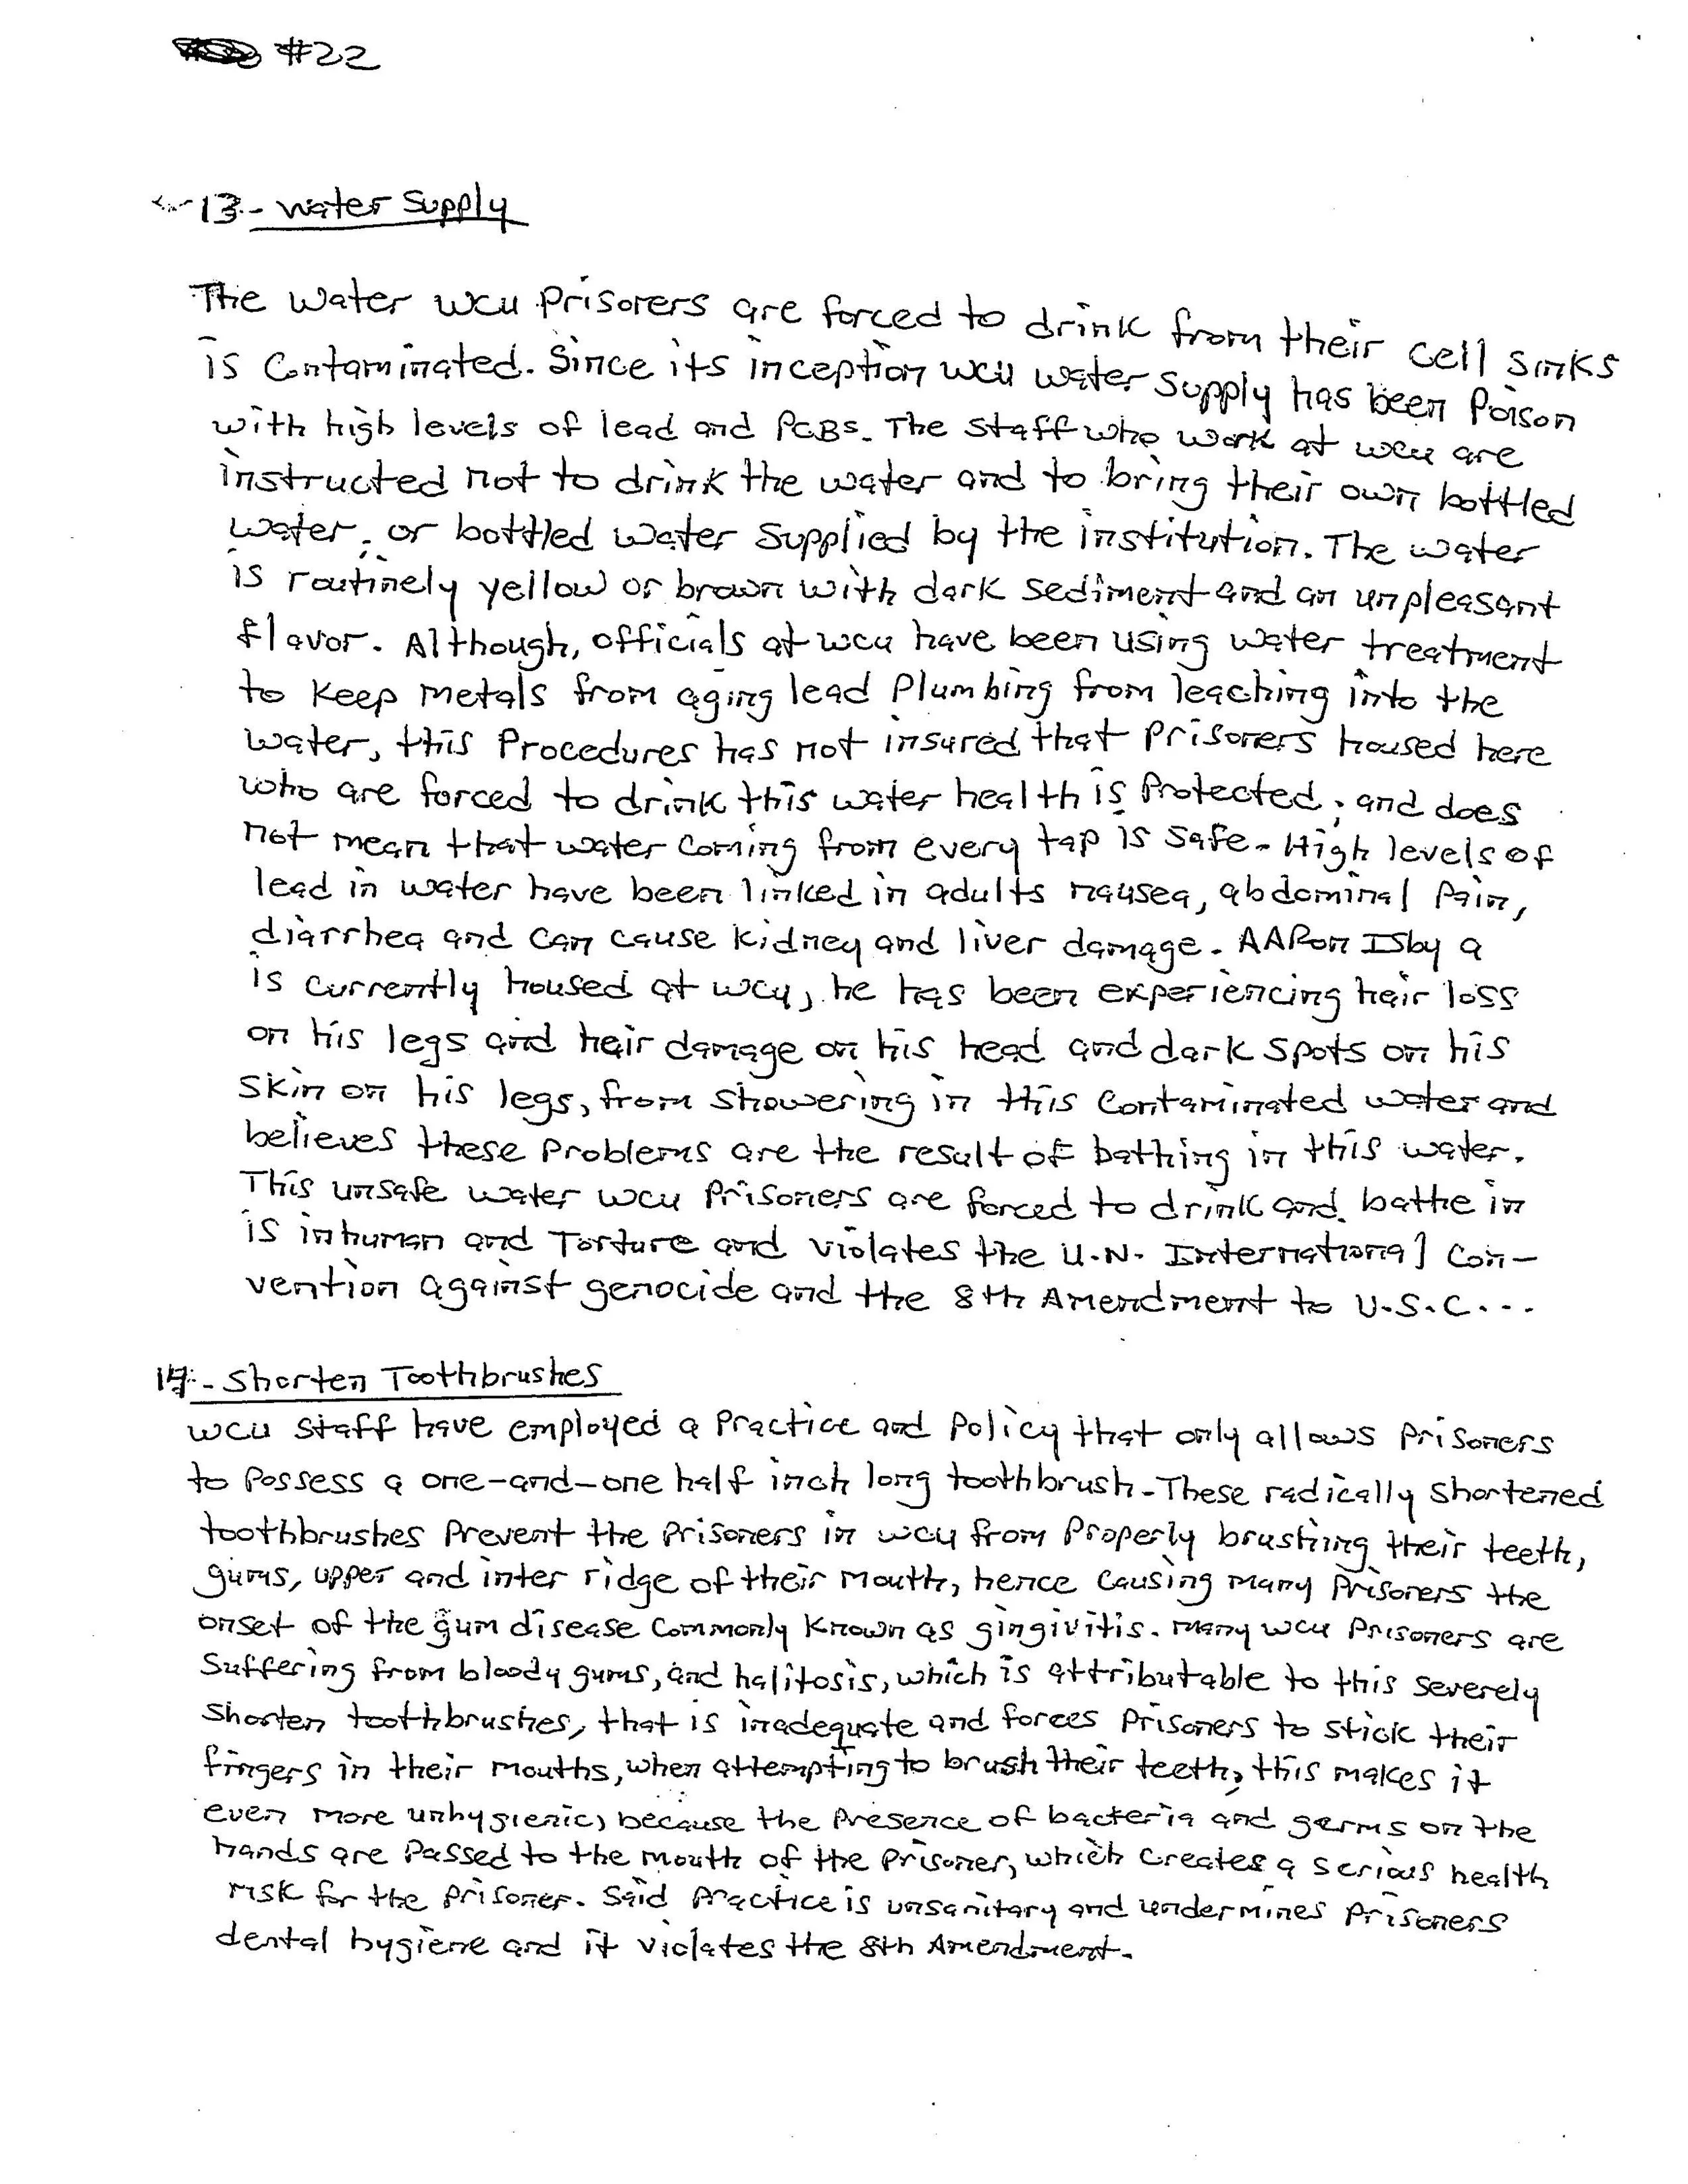 #22
13 - Water Supply
The water WCU Prisoners are forced to drink from their cell sinks
is Contaminated. Since its inception WCU water supply has been Poison
with high levels of lead and PCBs. The staff who work at WCU are
instructed not to drink the water and to bring their own bottled
water, or bottled water supplied by the institution. The water
is routinely yellow or brown with dark sediment and an unpleasant
flavor. Although, officials at WCU have been using water treatment
to keep metals from aging lead Plumbing from leaching into the
water, this Procedures has not insured that prisoners housed here
who are forced to drink this water health is Protected; and does
not mean that water coming from every tap is safe. High levels of
lead in water have been linked in adults nausea, abdominal Pain,
diarrhea and can cause kidney and liver damage. AARon ISby a
is currently housed at WCU, he has been experiencing hair loss
on his legs and hair damage on his head and dark spots on his
skin on his legs, from showering in this contaminated water and
believes these Problems are the result of bathing in this water.
This unsafe water WCU Prisoners are forced to drink and bathe in
is inhuman and Torture and violates the U.N. International Con-
vention against genocide and the 8th Amendment to U.S.C...
14 - Shorten Toothbrushes
WCU Staff have employed a Practice and Policy that only allows Prisoners
to Possess a one-and-one half inch long toothbrush. These radically shortened
toothbrushes Prevent the Prisoners in WCU from Properly brushing their teeth,
gums, upper and inter ridge of their mouth, hence causing many Prisoners the
onset of the gum disease commonly known as gingivitis. Many WCU Prisoners are
Suffering from bloody gums, and halitosis, which is attributable to this severely
shorten toothbrushes, that is inadequate and forces Prisoners to stick their
fingers in their mouths, when attempting to brush their teeth, this makes it
even more unhygienic, because the Presence of bacteria and germs on the
hands are Passed to the mouth of the Prisoner, which creates a serious health
risk for the prisoner. Said Practice is unsanitary and undermines Prisoners
dental hygiene and it violates the 8th Amendment.